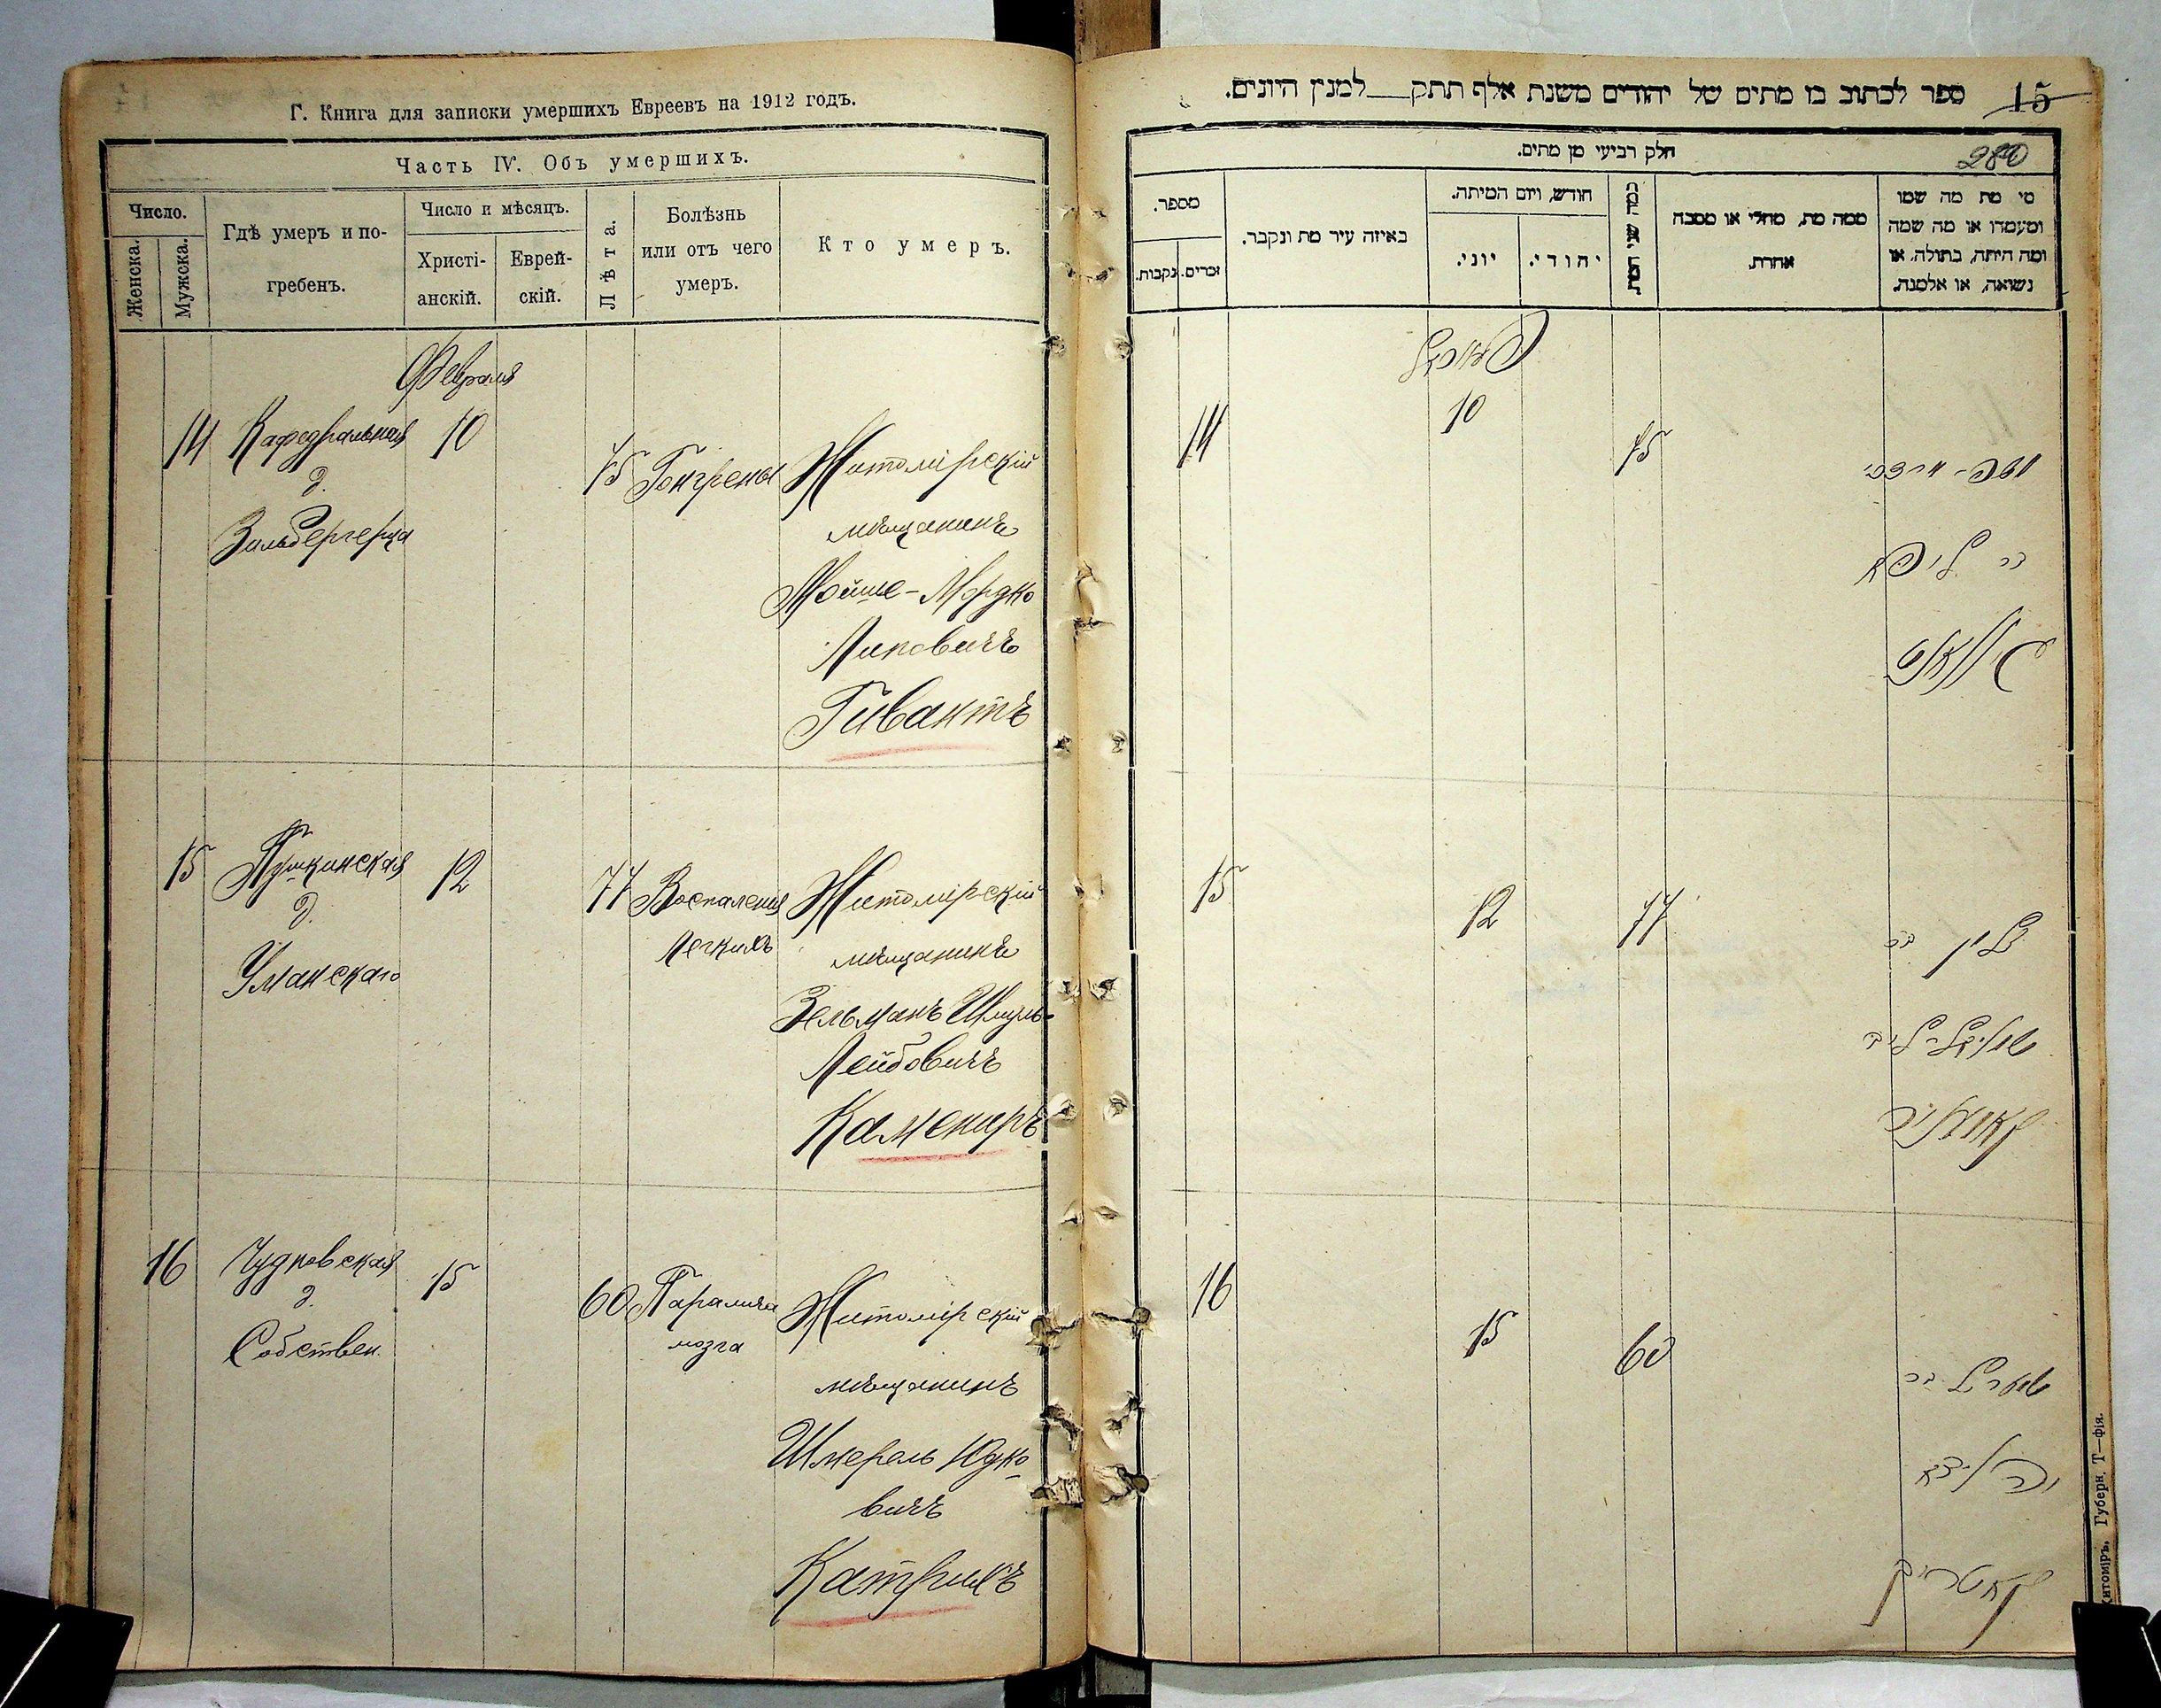 Г. Книга для записки умершихъ Евреевъ на 1912 годъ.
Часть IV. Объ умершихъ.
Число.
Женска.
Мужска.
Гдѣ умеръ и по-
гребенъ.
Число и мѣсяцъ.
Христі-
анскій.
Еврей-
скій.
Лѣта.
Болѣзнь
или отъ чего
умеръ.
Кто умеръ.
Февраля
14 Кафедральная 10 75 Гангрены Житомірскій
д.
Зильбергерца
мѣщанинъ
Мойше-Мордко
Липовичъ
Гивантъ
15 Пушкинская 12 77 Воспаленія Житомірскій
д.
Легкихъ
мѣщанинъ
Уманскаго
Зельманъ Шмуль-
Лейбовичъ
Камениръ
16 Чудновская 15 60 Паралича Житомірскій
д.
мозга
Собствен.
мѣщанинъ
Шмераль Юдко-
вичъ
Катрихъ
ספר לכתוב בו מתים של יהודים משנת אלף תתק__למנין היונים.
15
חלק רביעי מן מתים.
280
מספר.
נקבות.
זכרים.
באיזה עיר מת ונקבר.
חודש, ויום המיתה.
יוני.
יהודי.
כמה שני המת.
ממה מת, מחלי או מסבה
אחרת.
מי מת מה שמו
ומעמדו או מה שמה
ומה היתה, בתולה, או
נשואה, או אלמנה.
14
10
75
משה-מרדכי
בר ליפא
15
12
77
זלמן בר
16
15
60
שמערל בר
Губерн. Т—фія.